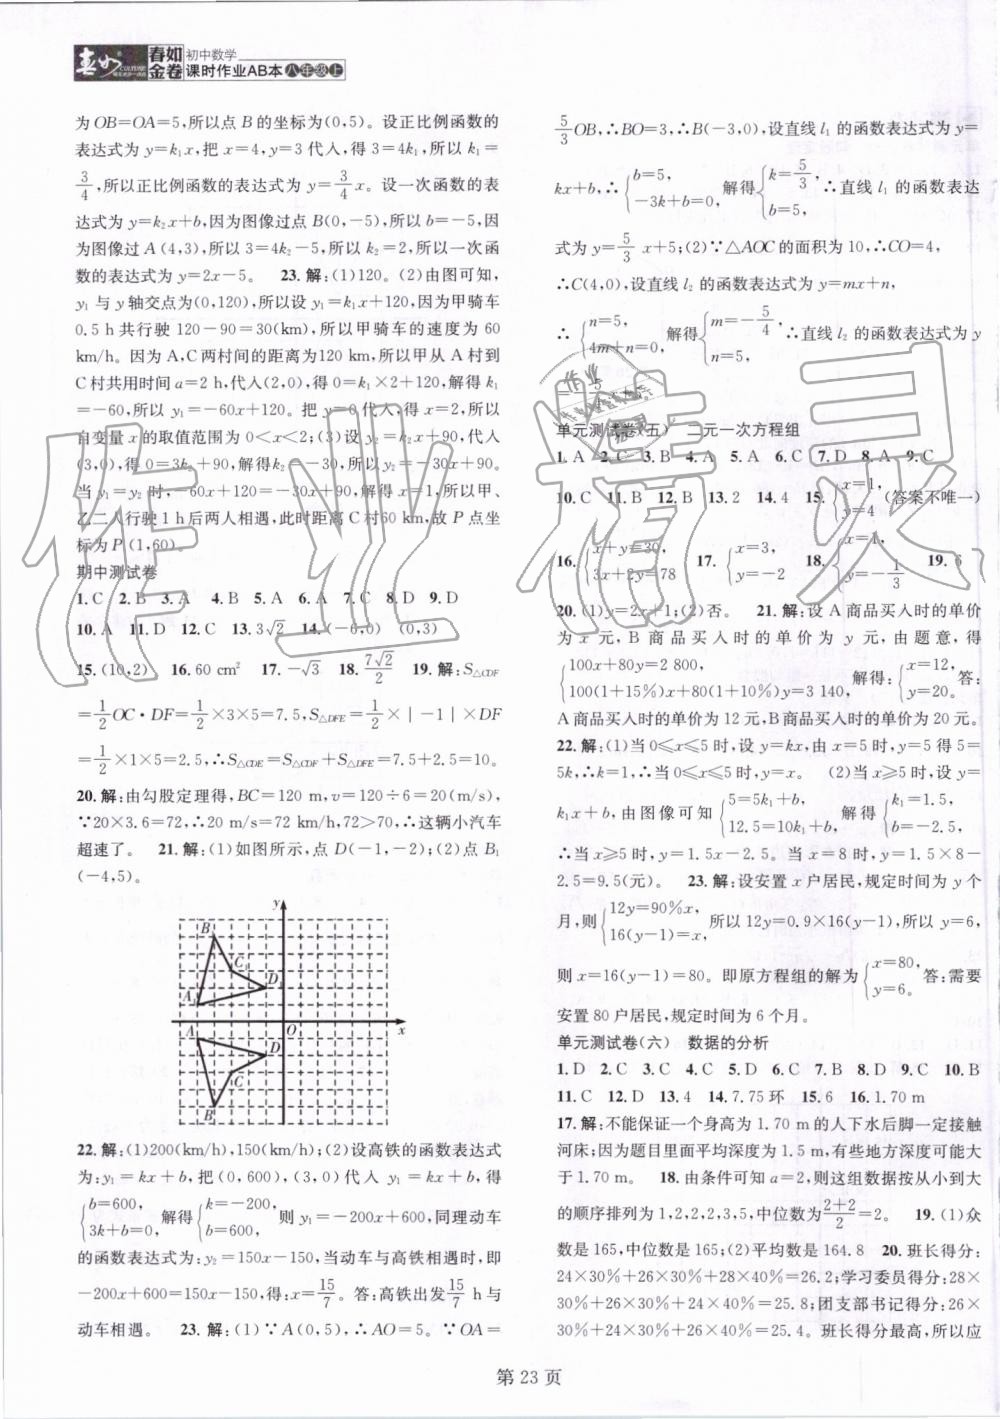 春如金卷 初中数学
课时作业AB本 八年级上
为OB=OA=5,所以点B的坐标为(0,5)。设正比例函数的
表达式为y=k₁x,把x=4,y=3代入,得3=4k₁,所以k₁=
3/4,所以正比例函数的表达式为y=3/4x。设一次函数的表
达式为y=k₂x+b,因为图像过点B(0,-5),所以b=-5,因
为图像过A(4,3),所以3=4k₂-5,所以k₂=2,所以一次函
数的表达式为y=2x-5。 23.解:(1)120。(2)由图可知,
y₁与y轴交点为(0,120),所以设y₁=k₁x+120,因为甲骑车
0.5 h共行驶120-90=30(km),所以甲骑车的速度为60
km/h。因为A,C两村间的距离为120 km,所以甲从A村到
C村共用时间a=2 h,代入(2,0),得0=k₁×2+120,解得k₁
=-60,所以y₁=-60x+120。把y=0代入,得x=2,所以
自变量x的取值范围为0<x<2;(3)设y₂=k₂x+90,代入
(3,0),得0=3k₂+90,解得k₂=-30,所以y₂=-30x+90。
当y₁=y₂时,-60x+120=-30x+90,解得x=1,所以甲、
乙二人行驶1 h后两人相遇,此时距离C村60 km,故P点坐
标为P(1,60)。
期中测试卷
1.C 2.B 3.A 4.B 5.A 6.C 7.C 8.D 9.D
10.A 11.D 12.C 13.3√2 14.(-6,0) (0,3)
15.(10,2) 16.60 cm² 17.-√3 18.7√2/2 19.解:S△CDF
=1/2OC·DF=1/2×3×5=7.5,S△DFE=1/2×|-1|×DF
=1/2×1×5=2.5,∴S△CDE=S△CDF+S△DFE=7.5+2.5=10。
20.解:由勾股定理得,BC=120 m,v=120÷6=20(m/s),
∵20×3.6=72,∴20 m/s=72 km/h,72>70,∴这辆小汽车
超速了。 21.解:(1)如图所示,点D(-1,-2);(2)点B₁
(-4,5)。
y
B₁
C₁
D₁
A₁
O x
A
D
C
B
22.解:(1)200(km/h),150(km/h);(2)设高铁的函数表达式
为:y₁=kx+b,把(0,600),(3,0)代入y₁=kx+b,得
{b=600, 3k+b=0, 解得{k=-200, b=600, 则y₁=-200x+600,同理动车
的函数表达式为:y₂=150x-150,当动车与高铁相遇时,即
-200x+600=150x-150,得:x=15/7。答:高铁出发15/7 h与
动车相遇。 23.解:(1)∵A(0,5),∴AO=5。∵OA=
5/3OB,∴BO=3,∴B(-3,0),设直线l₁的函数表达式为y=
kx+b,∴{b=5, -3k+b=0, 解得{k=5/3, b=5, ∴直线l₁的函数表达
式为y=5/3x+5;(2)∵△AOC的面积为10,∴CO=4,
∴C(4,0),设直线l₂的函数表达式为y=mx+n,
∴{n=5, 4m+n=0, 解得{m=-5/4, n=5, ∴直线l₂的函数表达式为y
单元测试卷(五) 二元一次方程组
1.A 2.C 3.B 4.A 5.A 6.C 7.D 8.A 9.C
10.C 11.B 12.B 13.2 14.4 15.{x=1, y=4 (答案不唯一)
16.{x+y=30, 3x+2y=78 17.{x=3, y=-2 18.{x=1, y=-1/3 19.6
20.(1)y=2x+1;(2)否。 21.解:设A商品买入时的单价
为x元,B商品买入时的单价为y元,由题意,得
{100x+80y=2 800, 100(1+15%)x+80(1+10%)y=3 140, 解得:{x=12, y=20。 答:
A商品买入时的单价为12元,B商品买入时的单价为20元。
22.解:(1)当0≤x≤5时,设y=kx,由x=5时,y=5得5=
5k,∴k=1,∴当0≤x≤5时,y=x。 (2)当x≥5时,设y=
k₁x+b,由图像可知{5=5k₁+b, 12.5=10k₁+b, 解得{k₁=1.5, b=-2.5,
∴当x≥5时,y=1.5x-2.5。当x=8时,y=1.5×8-
2.5=9.5(元)。 23.解:设安置x户居民,规定时间为y个
月,则{12y=90%x, 16(y-1)=x, 所以12y=0.9×16(y-1),所以y=6,
则x=16(y-1)=80。即原方程组的解为{x=80, y=6。 答:需要
安置80户居民,规定时间为6个月。
单元测试卷(六) 数据的分析
1.D 2.C 3.C 4.C 5.D 6.B 7.B 8.D 9.C 10.B
11.C 12.D 13.4 14.7.75环 15.6 16.1.70 m
17.解:不能保证一个身高为1.70 m的人下水后脚一定接触
河床;因为题目里面平均深度为1.5 m,有些地方深度可能大
于1.70 m。 18.由条件可知a=2,则这组数据按从小到大
的顺序排列为1,2,2,2,3,5,中位数为2+2/2=2。 19.(1)众
数是165,中位数是165;(2)平均数是164.8 20.班长得分:
24×30%+26×30%+28×40%=26.2;学习委员得分:28×
30%+26×30%+24×40%=25.8;团支部书记得分:26×
30%+24×30%+26×40%=25.4。班长得分最高,所以应
第23页
作业精灵